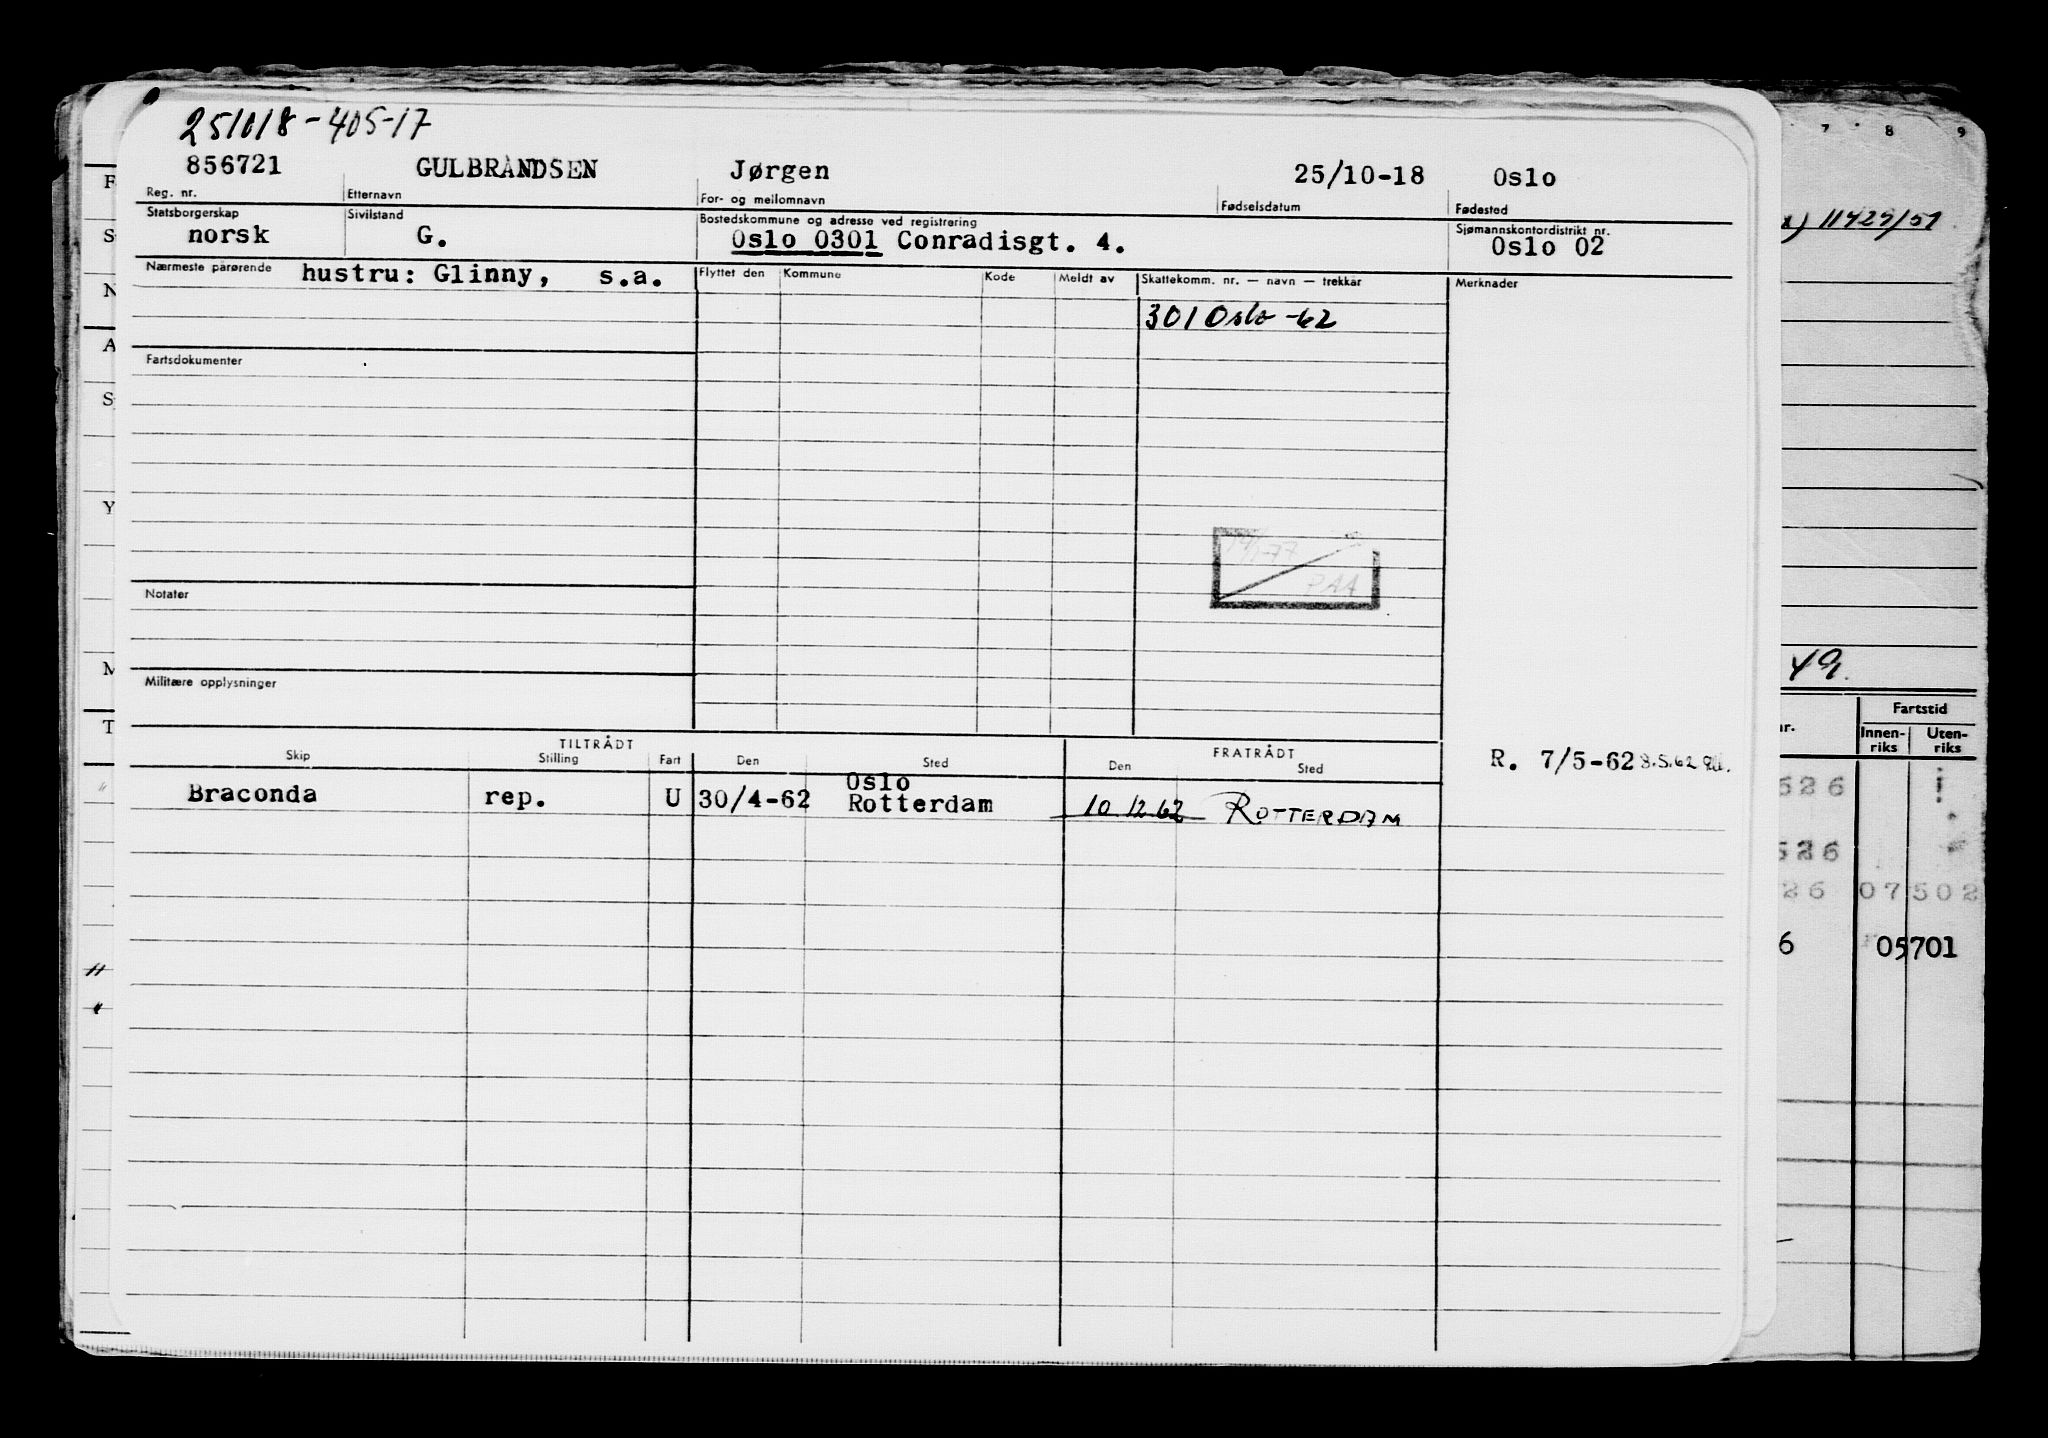 251018-405-17
856721 GULBRANDSEN Jørgen 25/10-18 Oslo
Reg. nr. Etternavn For- og mellomnavn Fødselsdatum Fødested
Statsborgerskap Sivilstand Bostedskommune og adresse ved registrering Sjømannskontordistrikt nr.
norsk G. Oslo 0301 Conradisgt. 4. Oslo 02
Nærmeste pårørende hustru: Glinny, s.a. Flyttet den Kommune Kode Meldt av Skattekomm. nr. — navn — trekkår Merknader
301 Oslo -62
Fartsdokumenter
14/1-77
PAA
Notater
Militære opplysninger
TILTRÅDT FRATRÅDT
Skip Stilling Fart Den Sted Den Sted
R. 7/5-62 8.5.62
Oslo
Braconda rep. U 30/4-62 Rotterdam 10.12.62 ROTTERDAM
7 8 9
11427/51
49.
nr. Fartstid
Innen-
riks Uten-
riks
526
526
26 07502
6 05701
F
S
N
A
S
Y
M
T